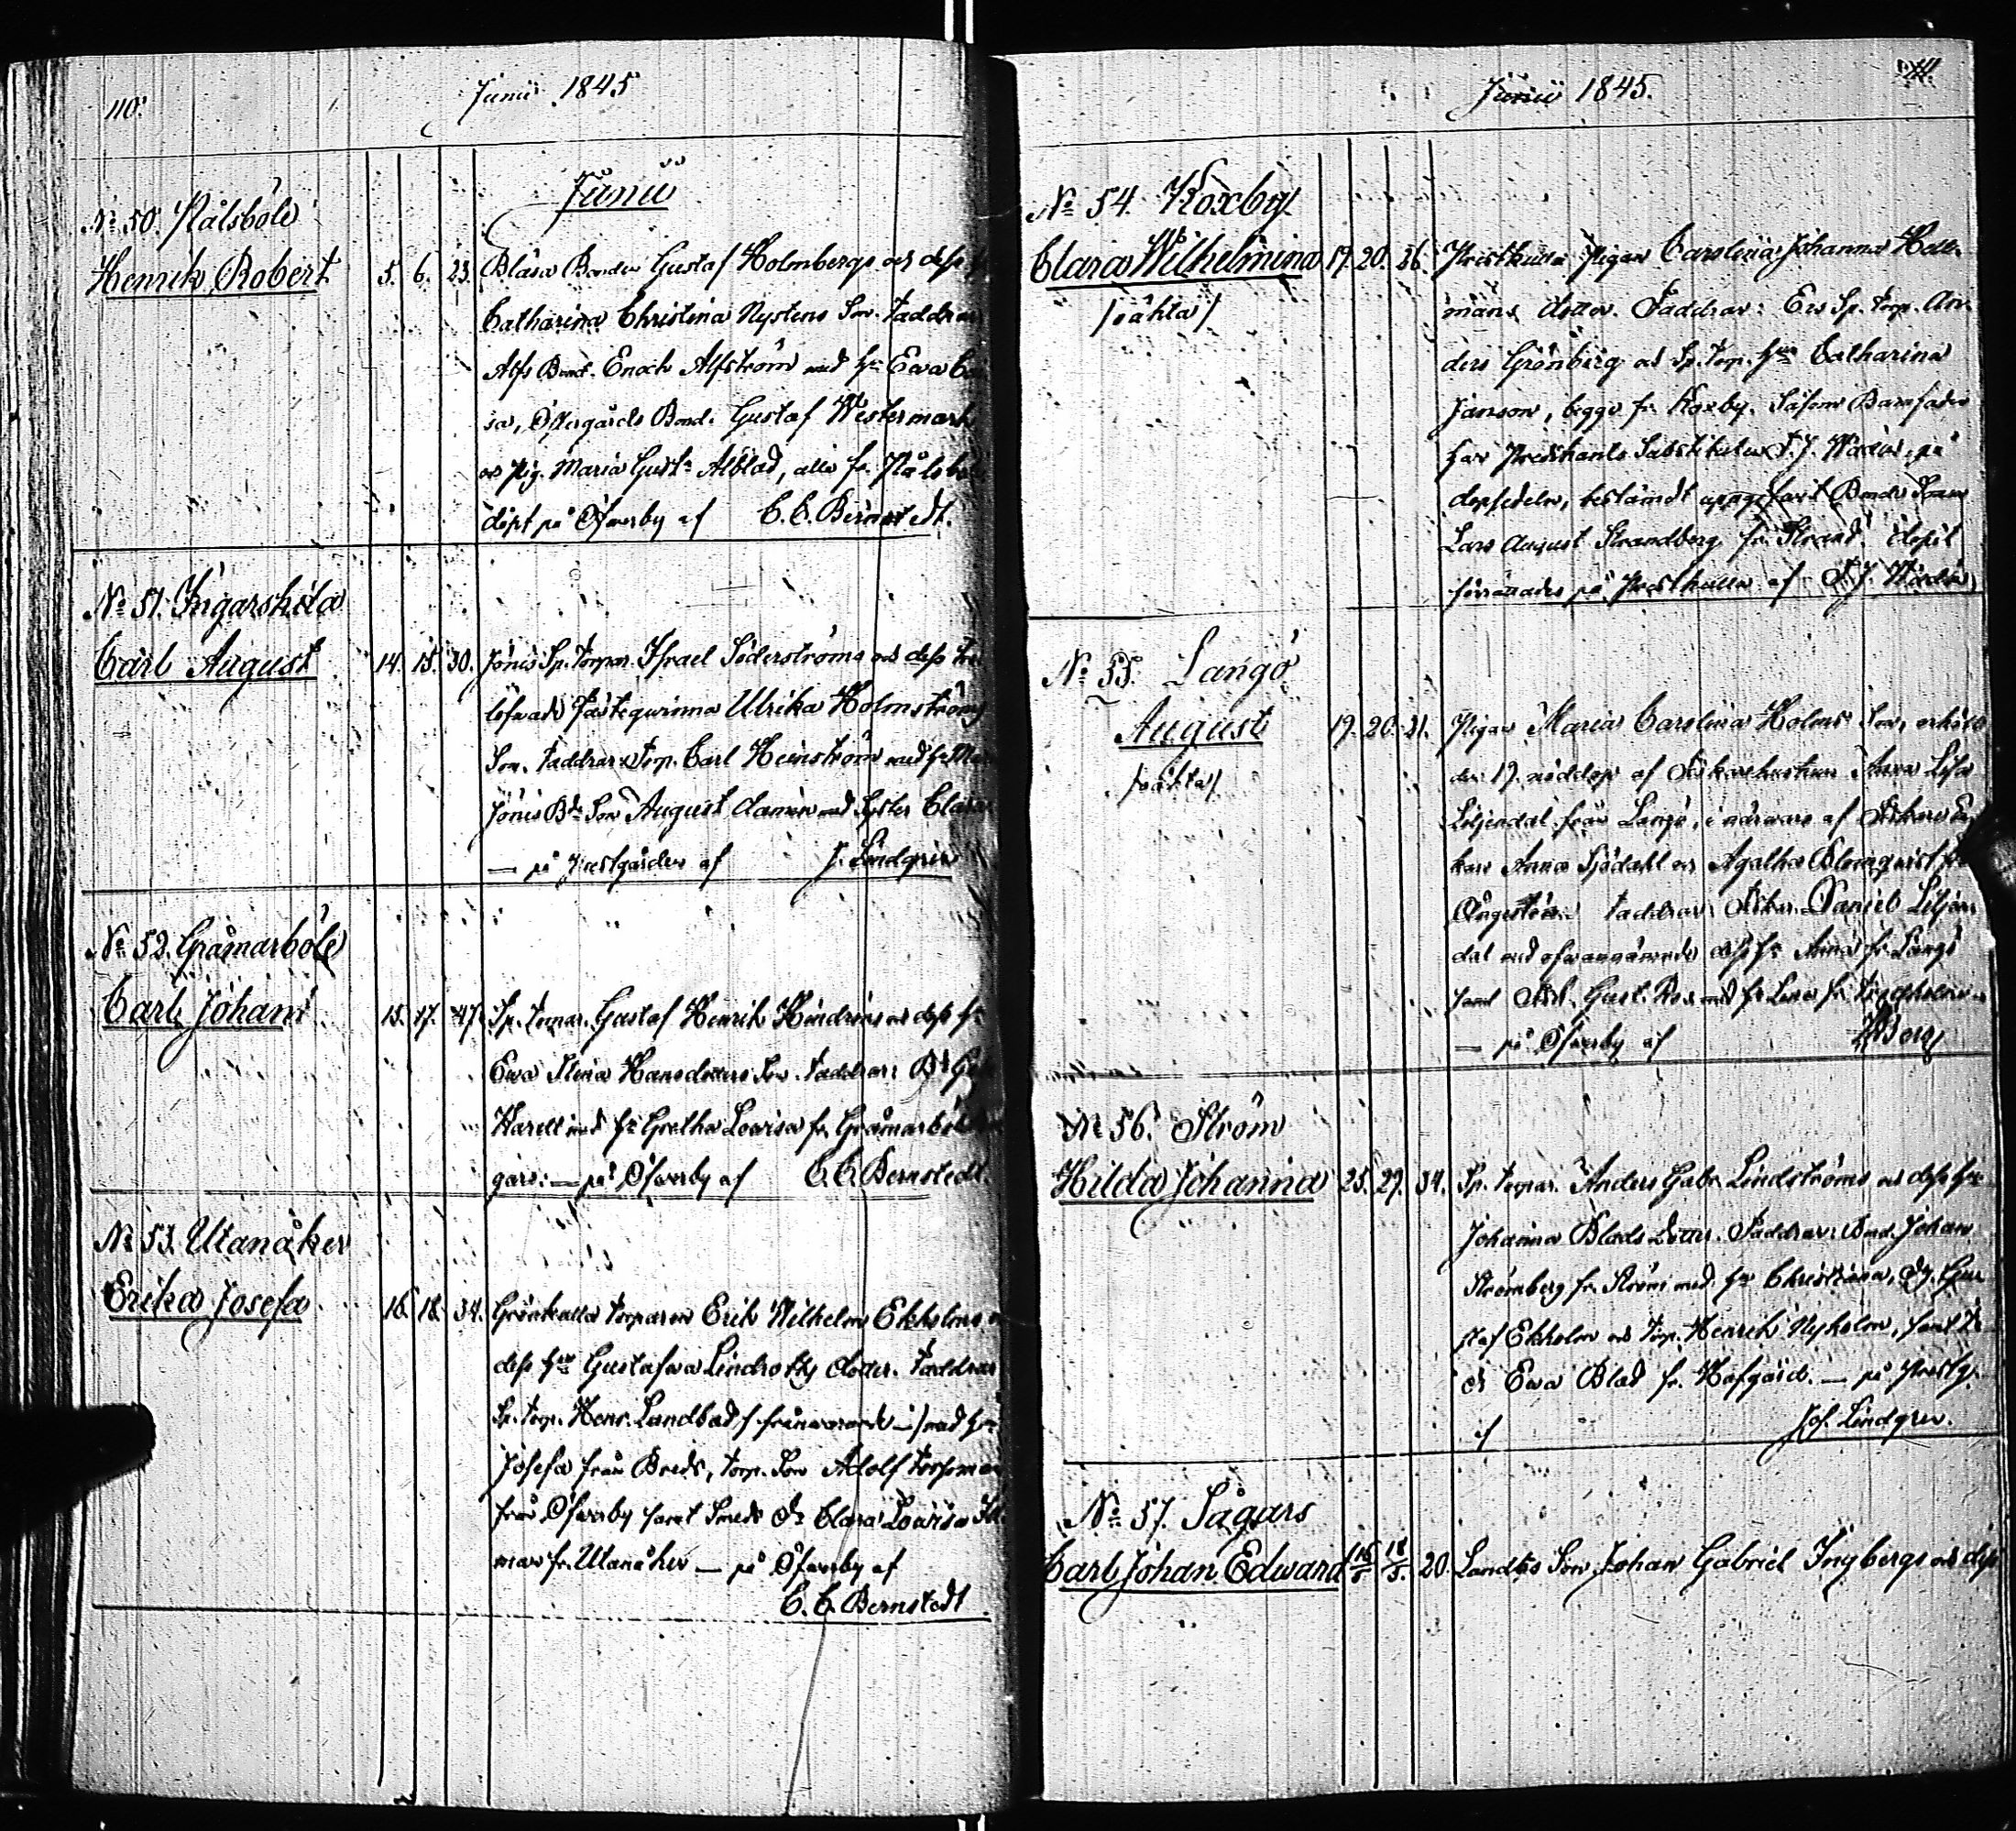 110.
Junii 1845
Junii
No 50. Nålsböle
Henrik Robert 5. 6. 23. Bläsa Bonden Gustaf Holmbergs och dess
Catharina Christina Nystens Son. Faddrar
Alfs Bond. Enoch Alfström med h. Ewa
sa, Öfvergårds Bond. Gustaf Westermark
och Pig. Maria Gust. Alblad, alla fr. Nålsböle
döpt på Öfverby af C. C. Bernstedt.
No 51. Ingarskila
Carl August 14. 15. 30. Jönis Sp. Torpar. Israel Söderströms och dess
lofvade Fästeqvinna Ulrika Holmströms
Son. Faddrar: Torp. Carl Heinström med h.
Jönis Bds Son August Damen med Syster Clara
— på Prestgården af J. Lindgren
No 52. Gråmarböle
Carl Johan 15. 17. 47. Sp. Torpar. Gustaf Henrik Hindréns och dess h.
Ewa Stina Hansdotters Son. Faddrar: Bd
Harell med h. Gretha Lovisa fr. Gråmarböle
gars: — på Öfverby af C. C. Bernstedt.
No 53. Utanåker
Erika Josefa 16. 18. 34. Grönkulla Torparen Erik Wilhelm Ekholms
dess hu Gustafva Lindroths dotter. Faddrar
Sp. Torp. Henr. Landblad /: frånvarande :/ med h.
Josefa från Breds, Torp. Son Adolf
från Öfverby samt Smeds Dr Clara Lovisa
man fr. Utanåker — på Öfverby af
C. C. Bernstedt
Junii 1845.
111.
No 54. Koxby
Clara Wilhelmina 19. 20. 26. Prestkulla Pigan Carolina Johanna Hell-
/oäkta/ mans dotter. Faddrar: Ers Sp. Torp. An-
ders Grönberg och Sp. Torp. hu Catharina
Janson, begge fr. Koxby. Såsom Barnfader
har Predikants Substituten F. J. Wadén, på
dopsedeln, bestämdt uppgifvit Bonde Sonen
Lars August Strandberg fr. Strand. Dopet
förrättades på Prestkulla af F. J. Wadén
No 55. Langö
August 19. 20. 31. Pigan Maria Carolina Holms Son, erhöll
/oäkta/ den 19. nöddop af Fiskarehustrun Anna Lisa
Liljendal från Langö, i närvaro af Fiskare En-
kan Anna Sjödahl och Agatha Blomqvist fr.
Faddrar: Fiskar. Daniel Liljen-
dal med ofvannämnde dess h. Anna fr. Langö
samt Fisk. Gust. Ros med h. Lena fr.
— på Öfverby af Borg
No 56. Ström
Hilda Johanna 25. 29. 34. Sp. Torpar. Anders Gabr. Lindströms och dess hu
Johanna Blads Dotter. Faddrar: Bond. Johan
Strömberg fr. Ström med hu Christina, Dg. Gus-
staf Ekholm och Torp. Henrik Nyholm, samt
Dr Ewa Blad fr. Hofgård. — på Prestg.
af Joh. Lindgren.
No 57. Sågars
Carl Johan Edward 16/5 18/5. 20. Landbo Son Johan Gabriel Ingbergs och dess